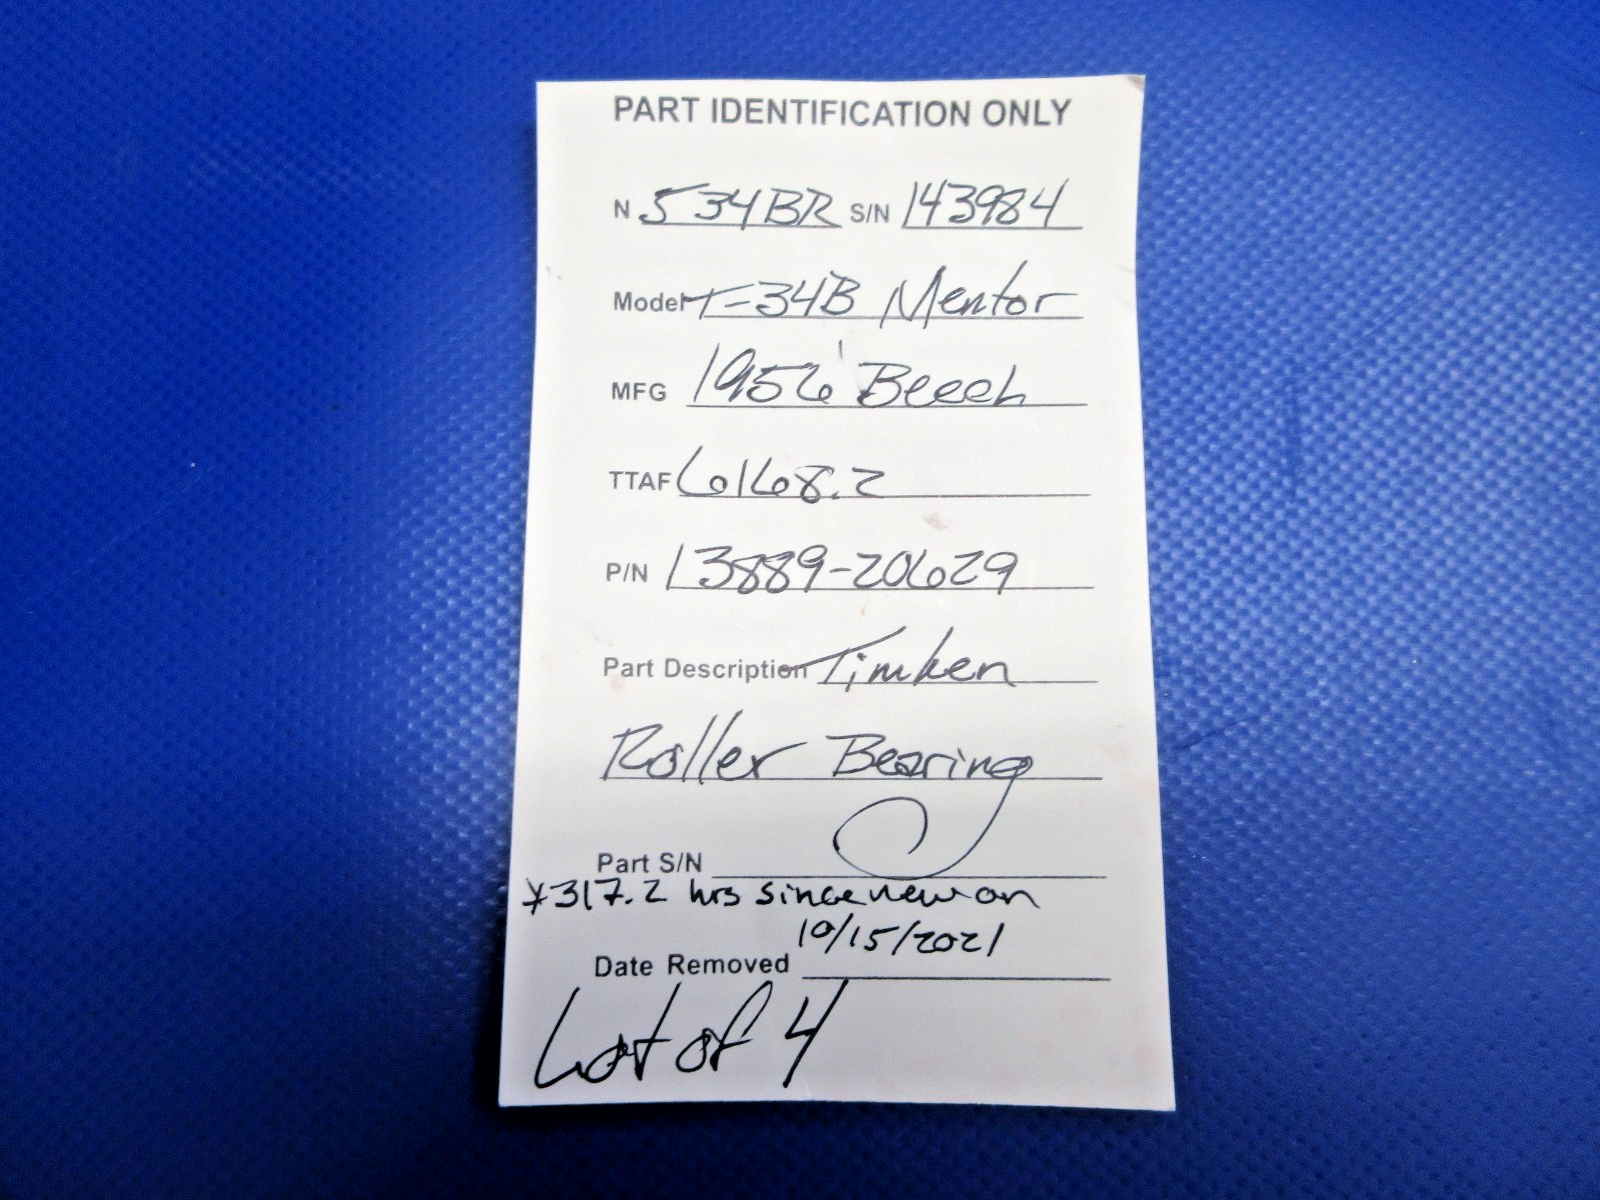 PART IDENTIFICATION ONLY
N 534BR S/N 143984
Model T-34B Mentor
MFG 1956 Beech
TTAF 6168.2
P/N 13889-20629
Part Description Timken
Roller Bearing
Part S/N
*317.2 hrs since new on
10/15/2021
Date Removed
Lot of 4